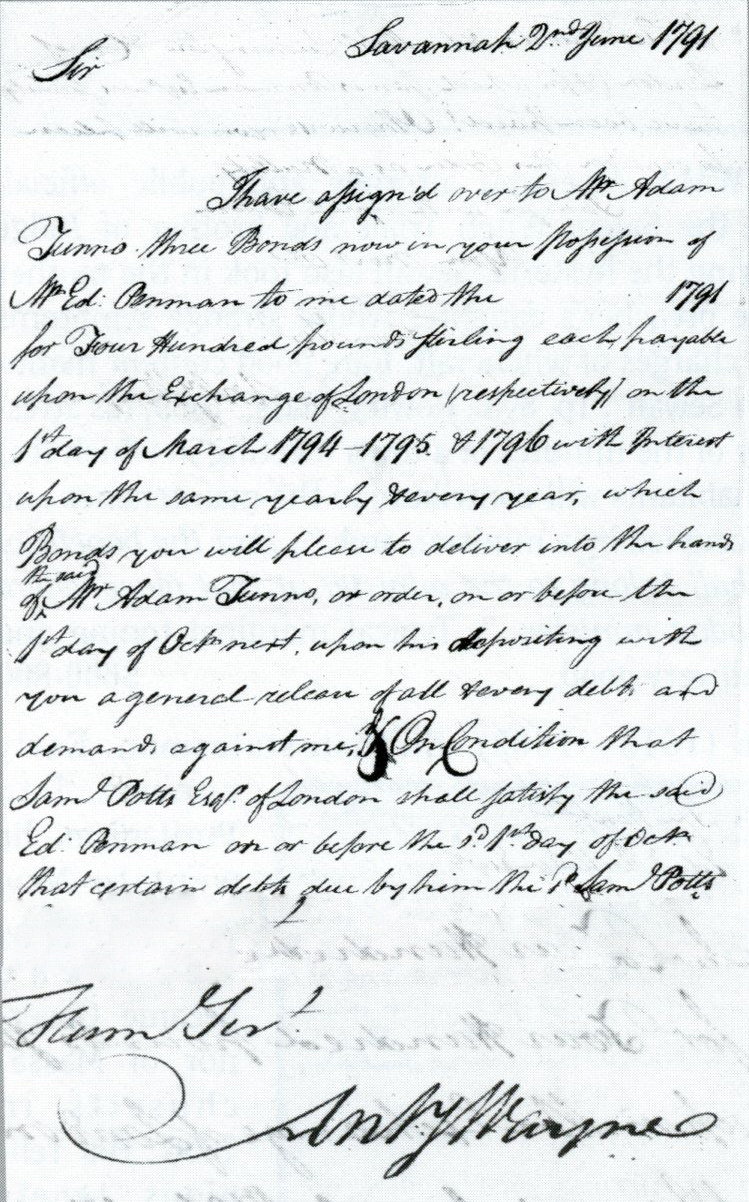 Savannah 2nd June 1791
Sir
I have assign'd over to Mr Adam
Tunno three Bonds now in your Possession of
Mr Ed: Penman to me dated the 1791
for Four Hundred pounds sterling each, payable
upon the Exchange of London (respectively) on the
1st day of March 1794 – 1795 & 1796 with Interest
upon the same yearly & every year, which
Bonds you will please to deliver into the hands
of the said Mr Adam Tunno, or order, on or before the
1st day of Octr next, upon his depositing with
you a general release of all & every debt and
demands against me, & On Condition that
Saml Potts Esqr. of London shall satisfy the said
Ed: Penman on or before the sd 1st day of Octr
that certain debt due by him the sd Saml Potts
Huml Servt
Anty Wayne